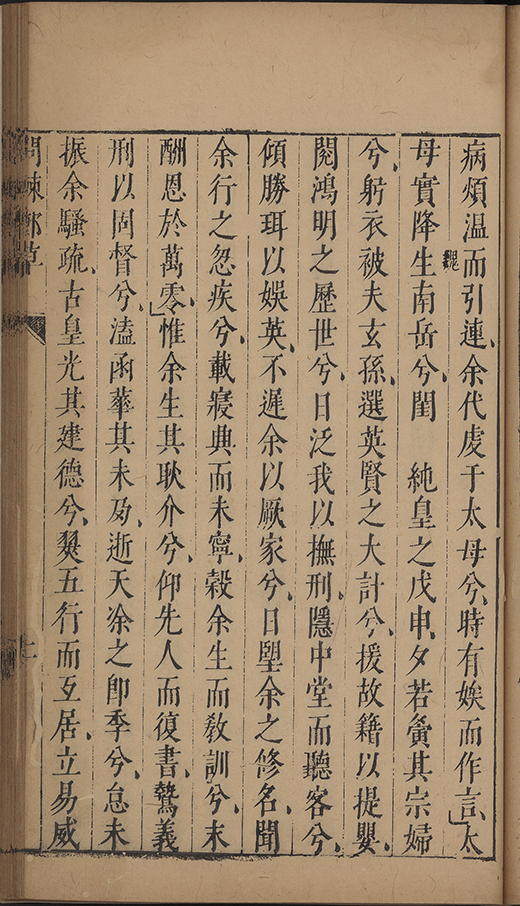 病煩溫而引連余代䖏于太母兮時有娭而作言太
母實降生南岳兮閏　純皇之戊申夕若夤其宗婦
兮躬衣被夫玄孫選英賢之大計兮援故籍以提嬰
閱鴻明之歷世兮日泛我以撫刑隱中堂而聽客兮
傾勝珥以娛英不遲余以厥家兮日朢余之修名聞
余行之忽疾兮載寢典而未寧榖余生而敎訓兮末
酬恩於萬零惟余生其耿介兮仰先人而復書騺義
刑以固督兮溘函蕐其未夃逝天凃之卽季兮怠未
振余騷疏古皇光其建德兮㷼五行而互居立易威
問棘郵草